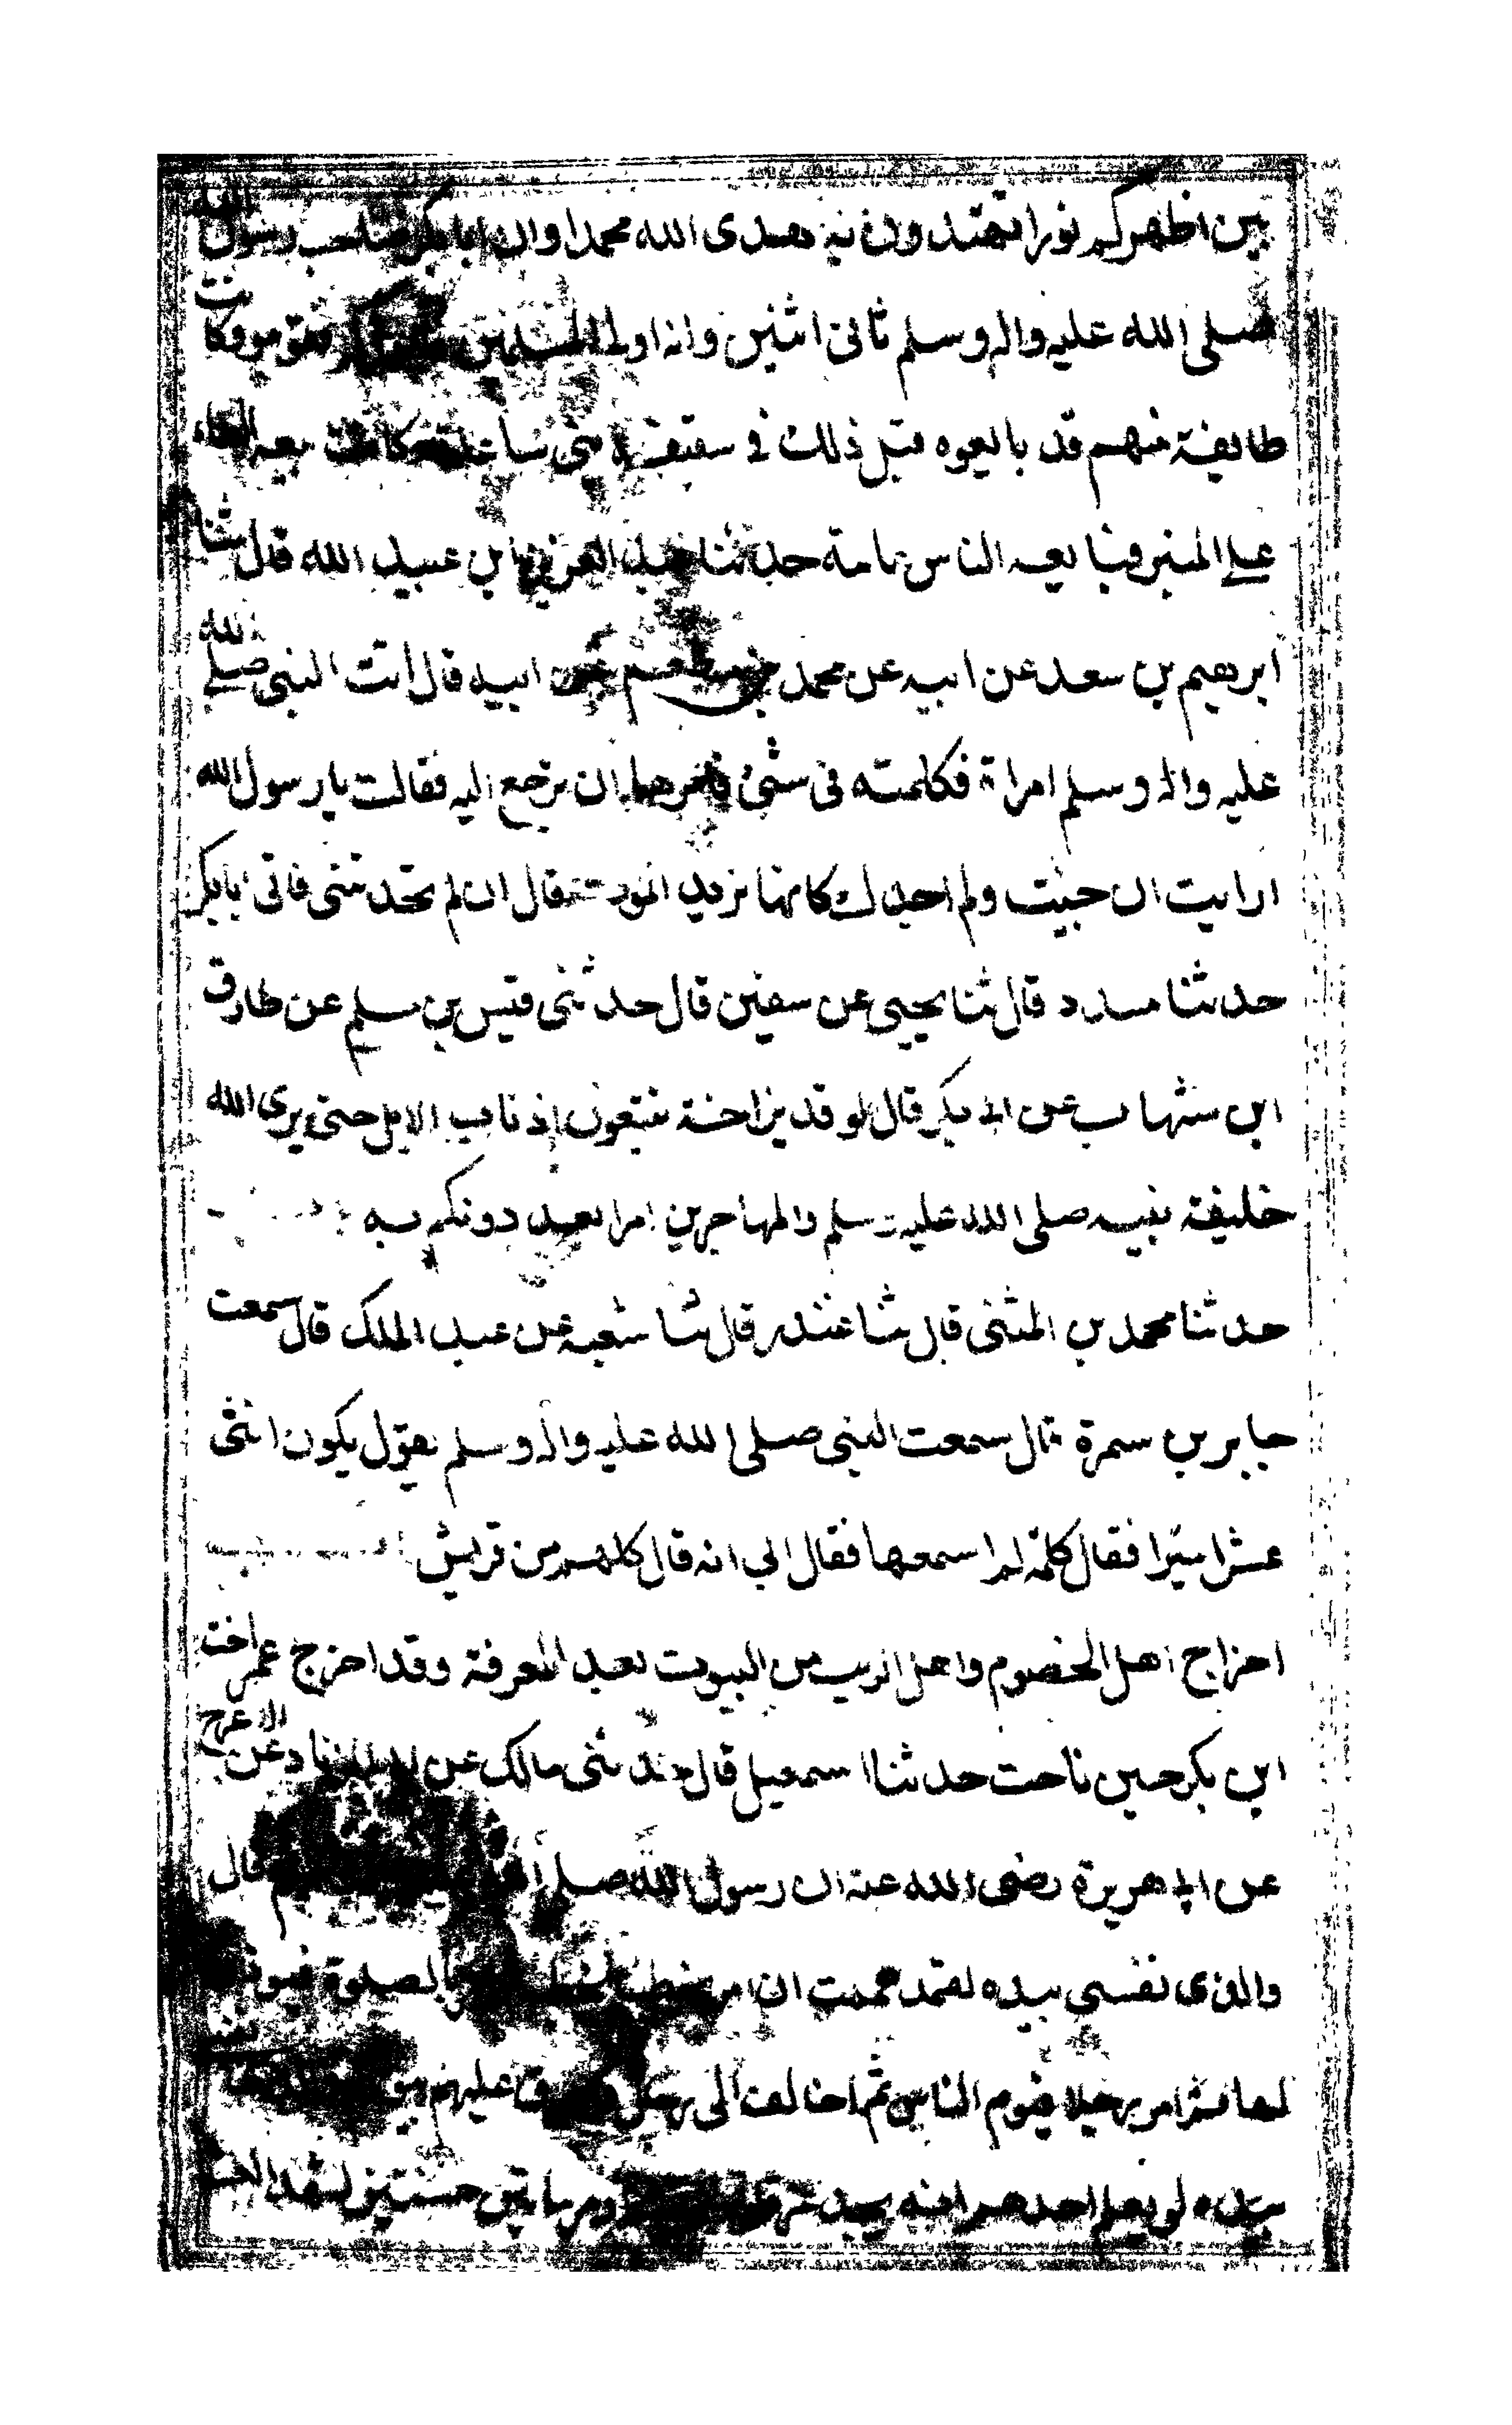 بين اظهركم نورا تهتدون به هدى الله محمدا وان ابا بكر صاحب رسول الله
صلى الله عليه واله وسلم ثاني اثنين وانه اولى المسلمين فقوموا وكانت
طائفة منهم قد بايعوه قبل ذلك في سقيفة بني ساعدة وكانت بيعة العامة
على المنبر فبايعه الناس عامة حدثنا عبد العزيز بن عبيد الله قال ثنا
ابرهيم بن سعد عن ابيه عن محمد بن جبير بن مطعم عن ابيه قال اتت النبي صلى الله
عليه واله وسلم امراة فكلمته في شئ فامرها ان ترجع اليه فقالت يا رسول الله
ارايت ان جئت ولم اجدك كانها تريد الموت فقال ان لم تجدينني فاتي ابا بكر
حدثنا مسدد قال ثنا يحيى عن سفين قال حدثني قيس بن مسلم عن طارق
ابن شهاب عن ابي بكر قال لوفد بزاخة تتبعون اذناب الابل حتى يرى الله
خليفة نبيه صلى الله عليه وسلم والمهاجرين امرا يعذرونكم به
حدثنا محمد بن المثنى قال ثنا غندر قال ثنا شعبة عن عبد الملك قال سمعت
جابر بن سمرة قال سمعت النبي صلى الله عليه واله وسلم يقول يكون اثنى
عشر اميرا فقال كلمة لم اسمعها فقال ابي انه قال كلهم من قريش
اخراج اهل الخصوم واهل الريب من البيوت بعد المعرفة وقد اخرج عمر اخت
ابن بكر حين ناحت حدثنا اسمعيل قال حدثني مالك عن ابي الزناد عن الاعرج
عن ابي هريرة رضي الله عنه ان رسول الله صلى قال
والذي نفسي بيده لقد هممت ان امر بحطب بالصلوة فيوذن
لها ثم امر رجلا فيوم الناس ثم اخالف الى رجال فاحرق عليهم
بيده لو يعلم احدهم انه يجد عرقا او مرماتين حسنتين لشهد العشا